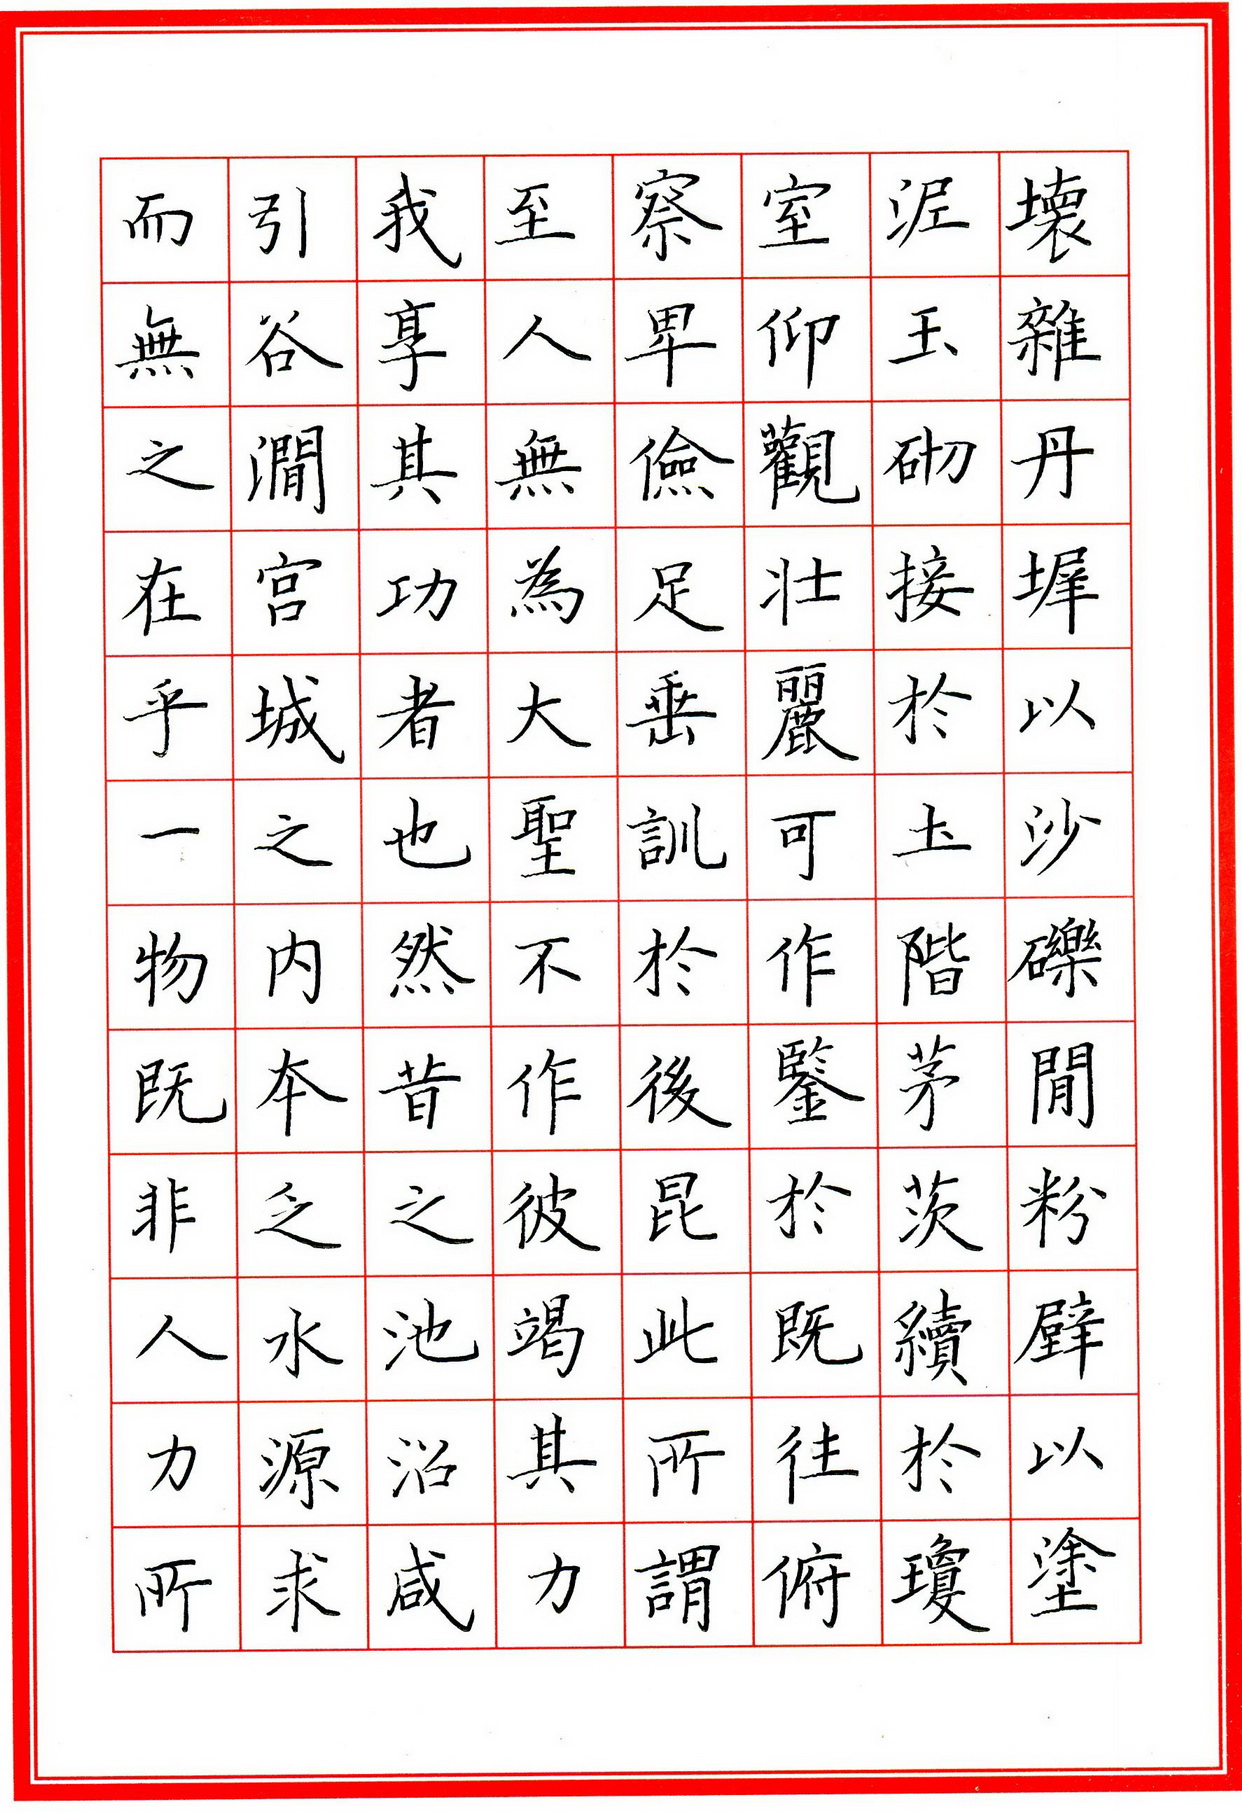 壞雜丹墀以沙礫閒粉壁以塗
泥玉砌接於土階茅茨續於瓊
室仰觀壯麗可作鑒於既往俯
察卑儉足垂訓於後昆此所謂
至人無為大聖不作彼竭其力
我享其功者也然昔之池沼咸
引谷澗宮城之內本乏水源求
而無之在乎一物既非人力所